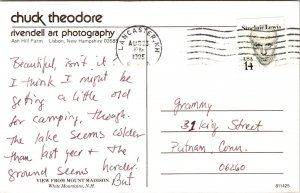 chuck theodore
rivendell art photography
Ash Hill Farm Lisbon, New Hampshire 03585
Beautiful, isn't it?
I think I might be
getting a little old
for camping, though.
The lake seems colder
than last year & the
ground seems harder.
But
VIEW FROM MOUNT MADISON
White Mountains, N.H.
LANCASTER, NH
AUG
PM
1995
Sinclair Lewis
USA
14
Grammy
31 King Street
Putnam, Conn.
06260